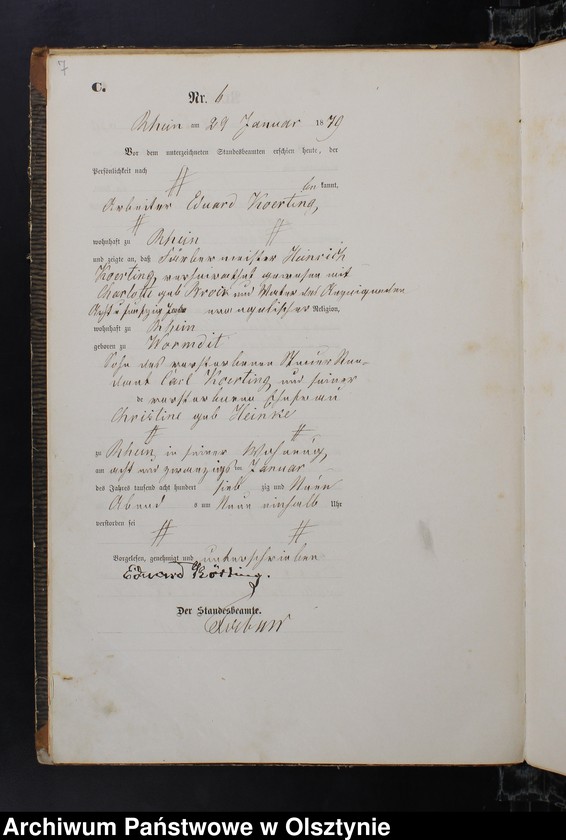 7
C.
Nr. 6
Rhein am 29 Januar 1879
Vor dem unterzeichneten Standesbeamten erschien heute, der
Persönlichkeit nach
be kannt,
Arbeiter Eduard Koerting,
wohnhaft zu Rhein
und zeigte an, daß Färbermeister Heinrich
Koerting, verheirathet gewesen mit
Charlotte geb und Vater des Anzeigenden
Acht u fünfzig Jahr evangelischer Religion,
wohnhaft zu Rhein
geboren zu Wormdit
Sohn des verstorbenen
Carl Koerting und seiner
verstorbenen Ehefrau
Christine geb Heinke
zu Rhein, in seiner Wohnung,
am acht und zwanzigs ten Januar
des Jahres tausend acht hundert sieb zig und Neun
Abend s um Neun einhalb Uhr
verstorben sei
Vorgelesen, genehmigt und unterschrieben
Eduard Körting.
Der Standesbeamte.
Archiwum Państwowe w Olsztynie